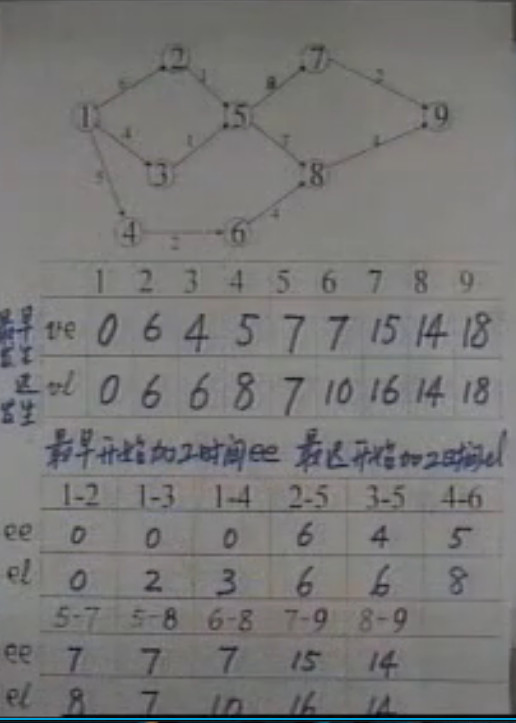 2 7
6 1 8 2
1 5 9
4 1 7 4
3 8
5
4 6
2 4
1 2 3 4 5 6 7 8 9
最早发生 ve 0 6 4 5 7 7 15 14 18
迟发生 vl 0 6 6 8 7 10 16 14 18
最早开始加工时间ee 最迟开始加工时间el
1-2 1-3 1-4 2-5 3-5 4-6
ee 0 0 0 6 4 5
el 0 2 3 6 6 8
5-7 5-8 6-8 7-9 8-9
ee 7 7 7 15 14
el 8 7 10 16 14